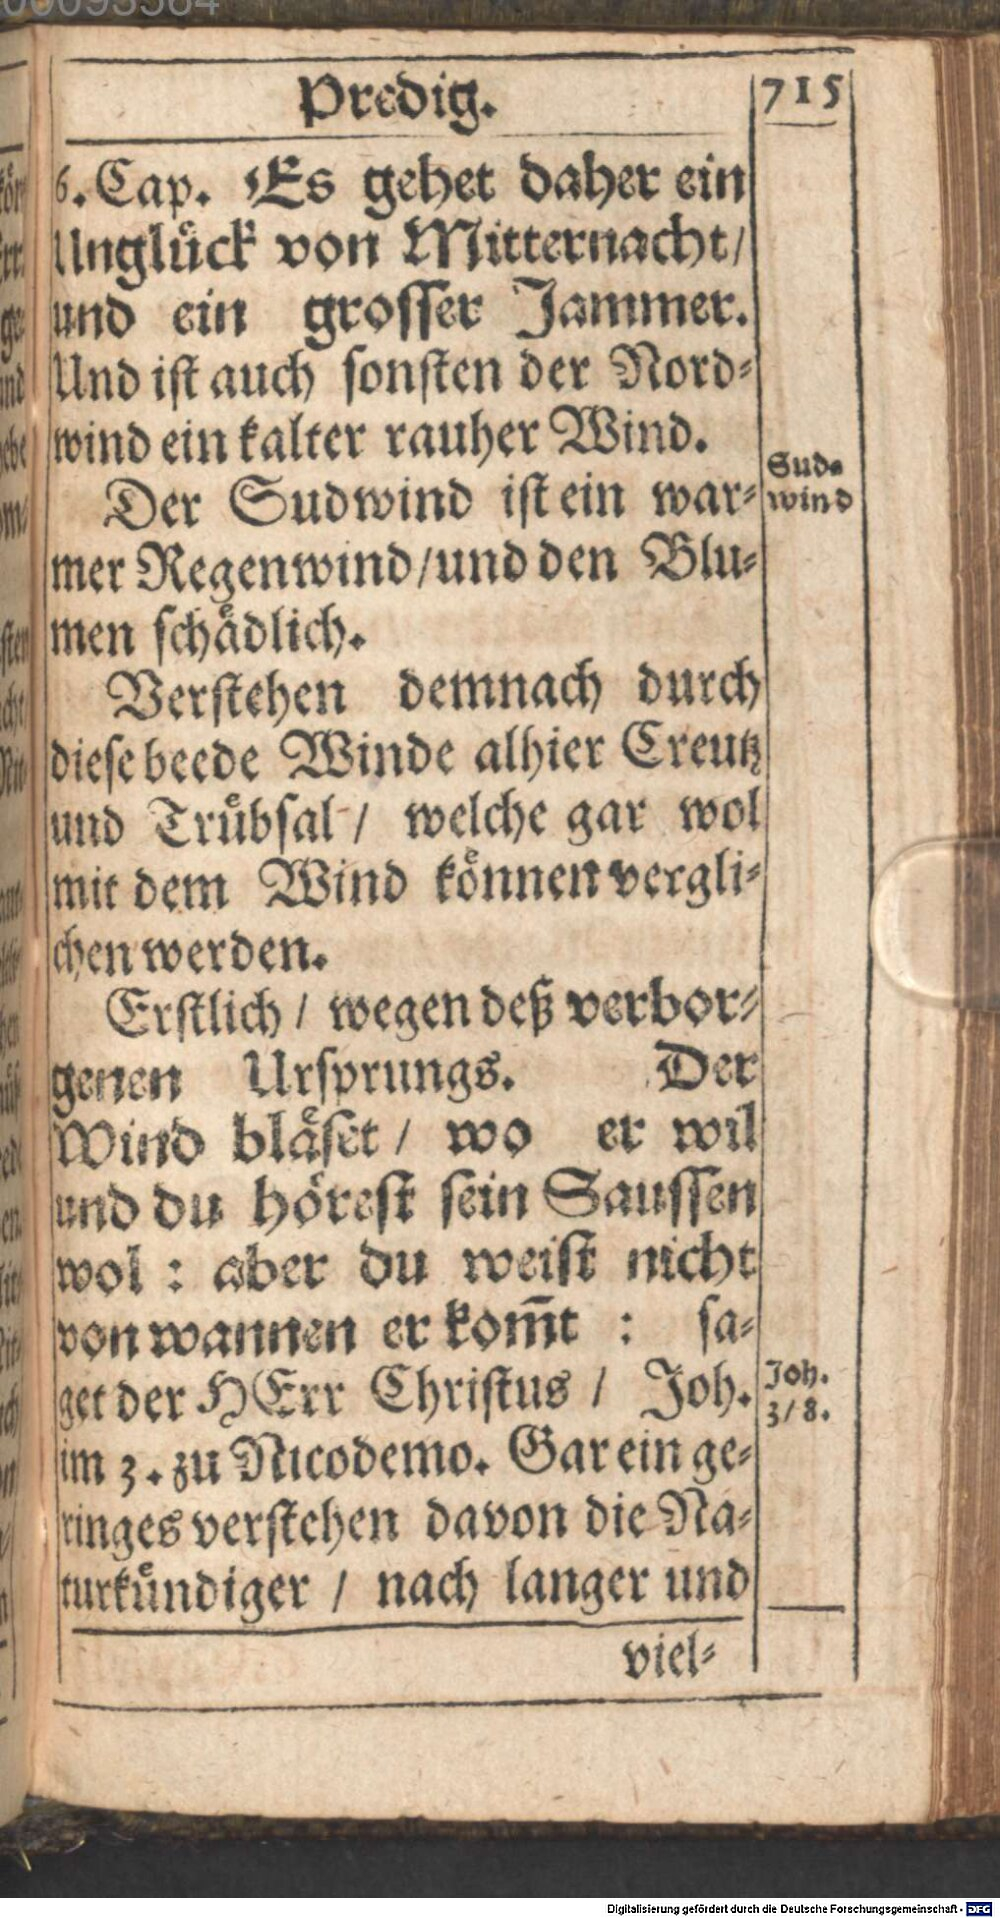 Predig. 715
6. Cap. Es gehet daher ein
Unglück von Mitternacht/
und ein grosser Jammer.
Und ist auch sonsten der Nord-
wind ein kalter rauher Wind.
Der Sudwind ist ein war-
Sud-
wind
mer Regenwind/und den Blu-
men schädlich.
Verstehen demnach durch
diese beede Winde alhier Creutz
und Trübsal / welche gar wol
mit dem Wind können vergli-
chen werden.
Erstlich / wegen deß verbor-
genen Ursprungs. Der
Wind bläset / wo er wil
und du hörest sein Saussen
wol : aber du weist nicht
von wannen er kom̅t : sa-
get der HErr Christus / Joh.
Joh.
3/8.
im 3. zu Nicodemo. Gar ein ge-
ringes verstehen davon die Na-
turkündiger / nach langer und
viel-
Digitalisierung gefördert durch die Deutsche Forschungsgemeinschaft - DFG